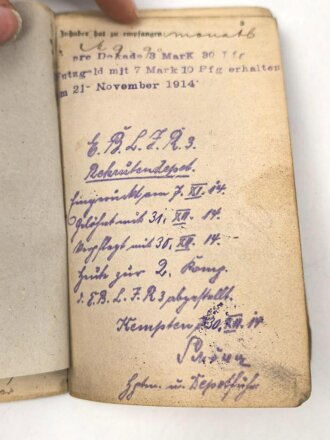 3
Inhaber hat zu empfangen monatl
ere Dekade 3 Mark 30 Pfg
utzgeld mit 7 Mark 10 Pfg erhalten
am 21. November 1914
E. B. L. J. R. 3.
Rekrutendepot.
Eingerückt am 7. XI. 14.
Gelöhnt mit 31. XII. 14.
Verpflegt mit 30. XII. 14.
Heute zur 2. Komp.
d. E. B. L. J. R 3 abgestellt.
Kempten, 30. XII. 14
Hptm. u. Depotführ